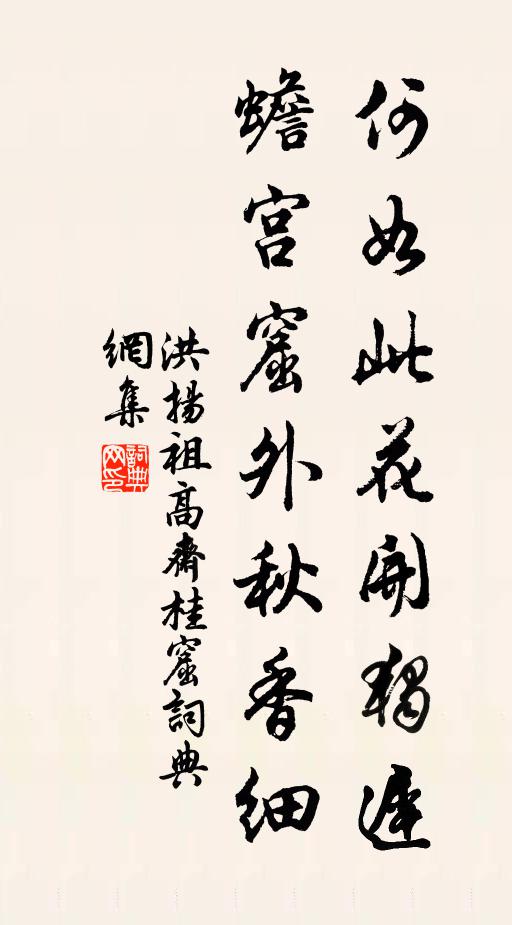 何如此花開獨遲
蟾宮窟外秋香細
洪揚祖高齋桂窟詞典
網集
詞典
网印